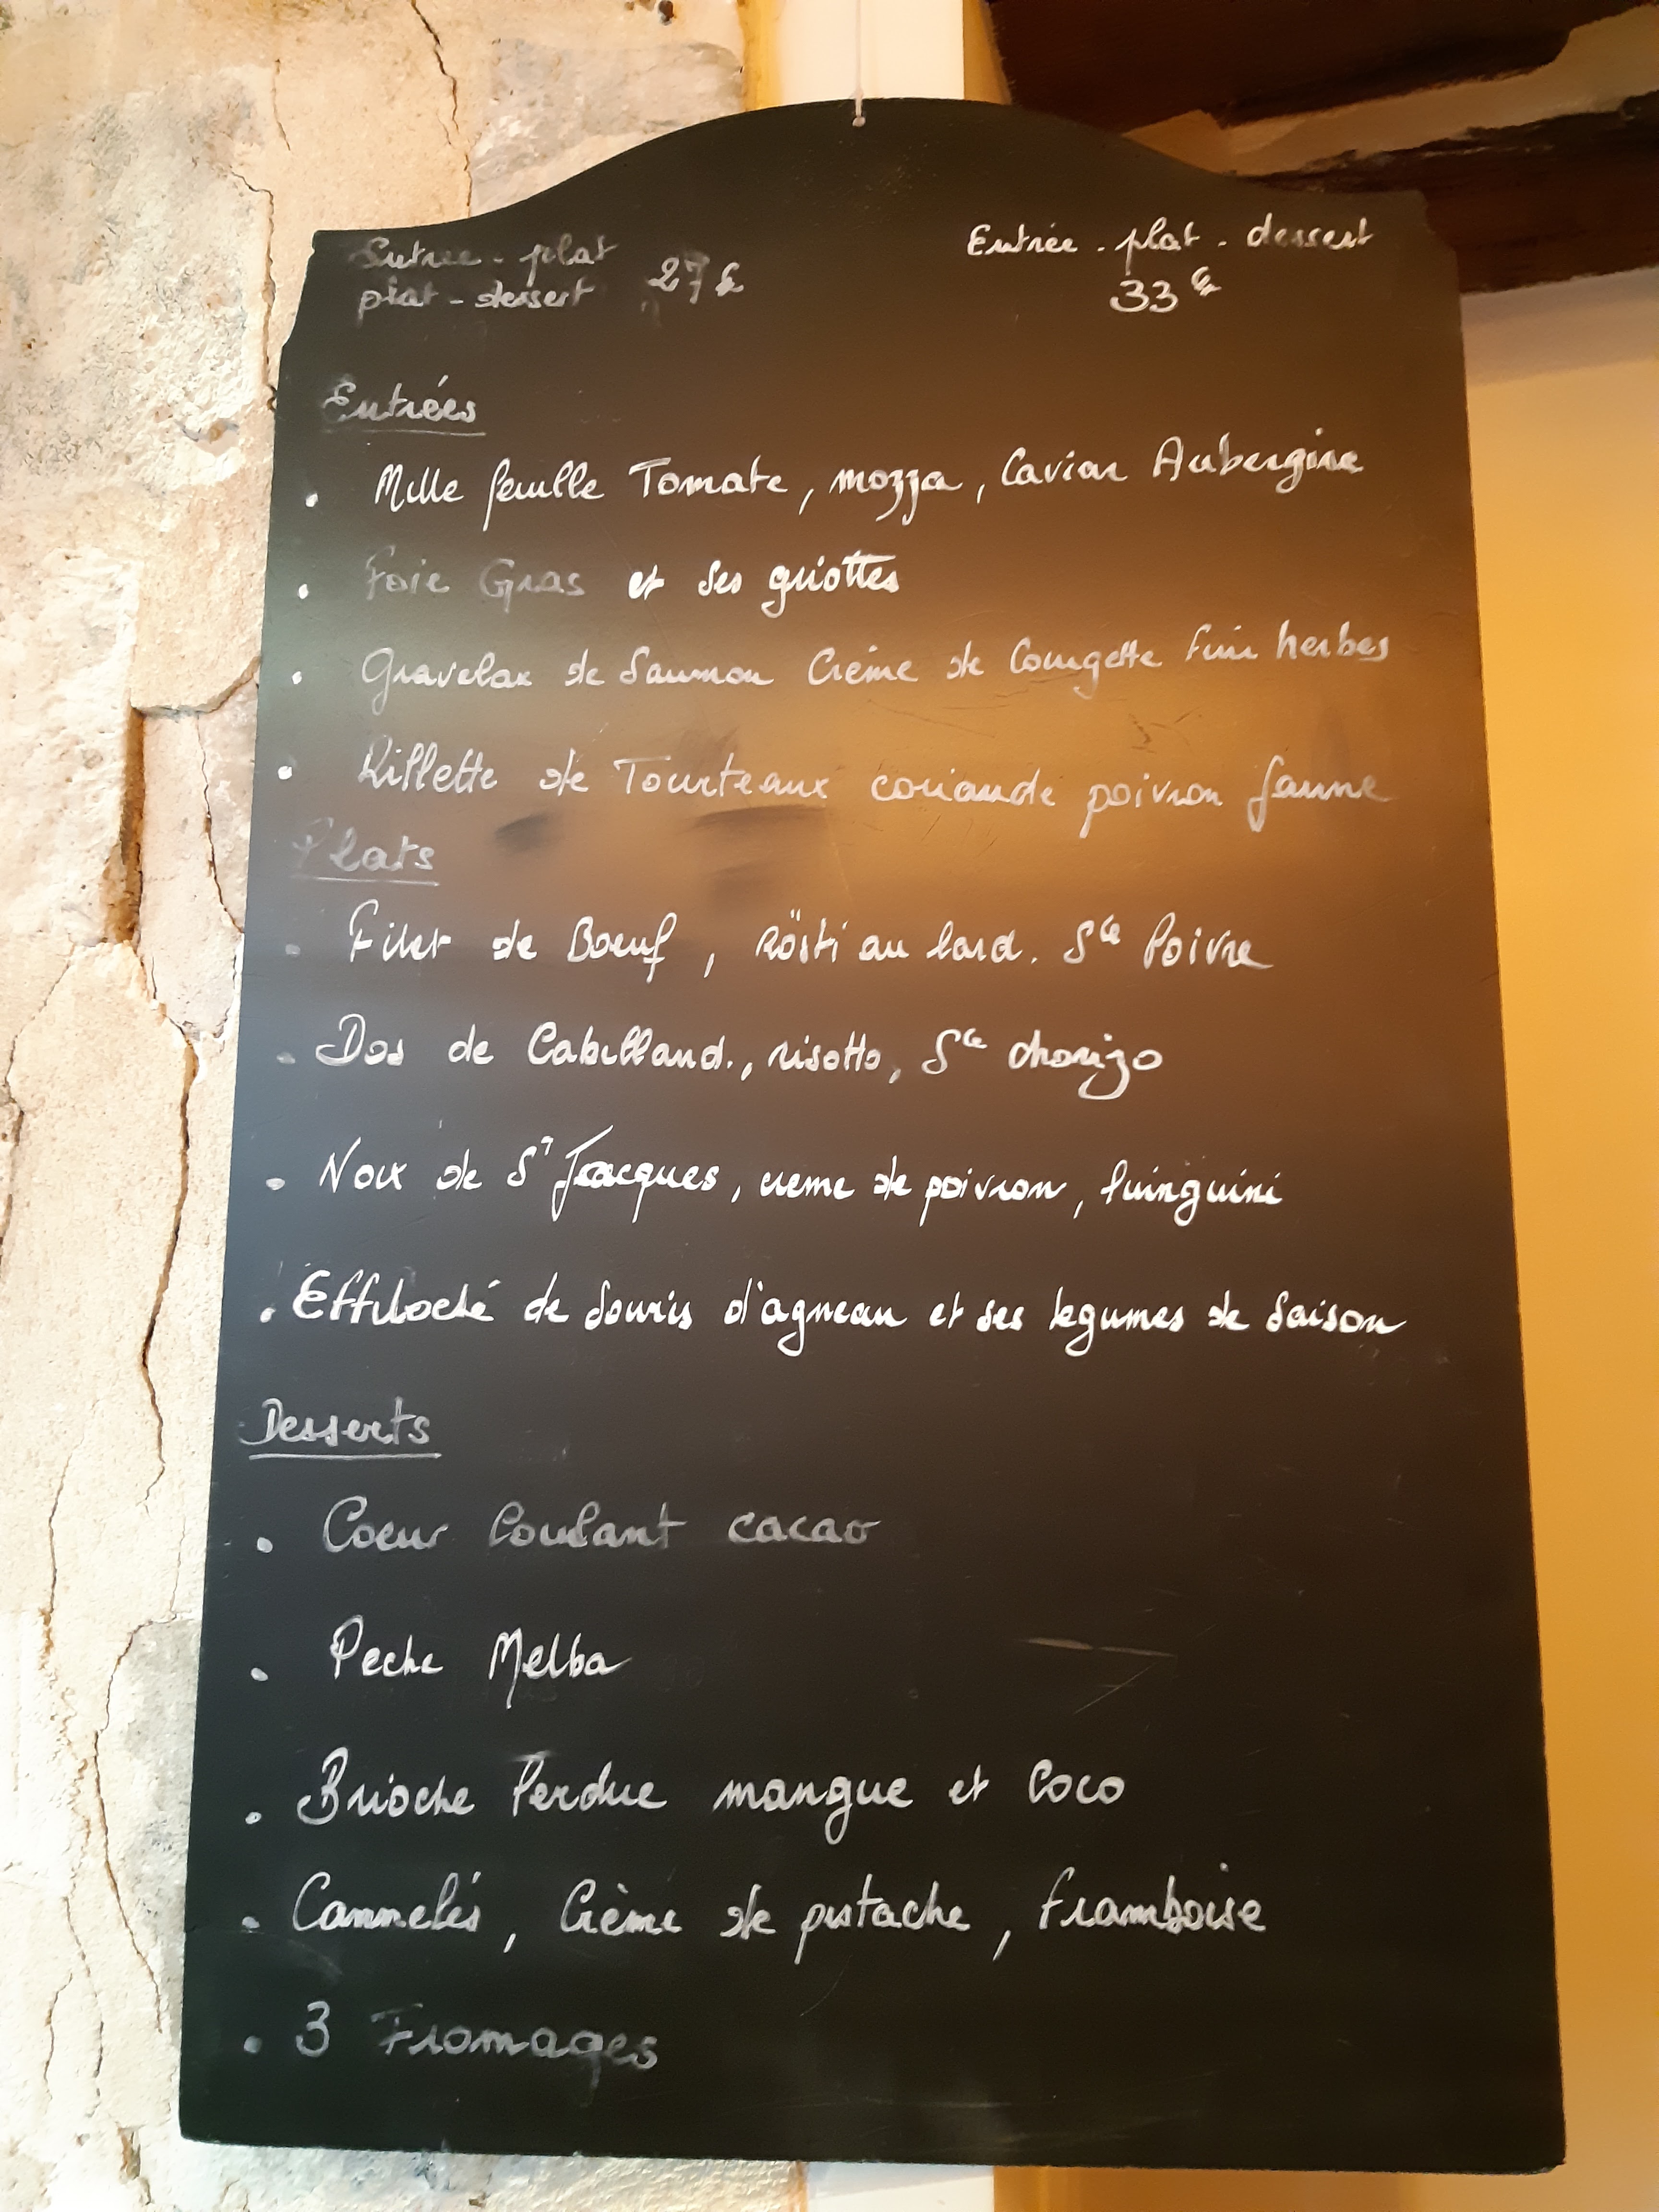 Entrée - plat
plat - dessert 27€
Entrée - plat - dessert
33€
Entrées
. Mille feuille Tomate, mozza, Caviar Aubergine
. Foie Gras et ses griottes
. Gravelax de Saumon Crème de Courgette Fine herbes
. Rillette de Tourteaux coriande poivron Jaune
Plats
. Filet de Boeuf, rösti au lard. Sce Poivre
. Dos de Cabillaud., risotto, Sce chorizo
. Noix de St Jacques, creme de poivron, luinguini
. Effiloché de Souris d'agneau et ses legumes de Saison
Desserts
. Coeur Coulant cacao
. Peche Melba
. Brioche Perdue mangue et Coco
. Cannelés, Crème de pistache, framboise
. 3 Fromages